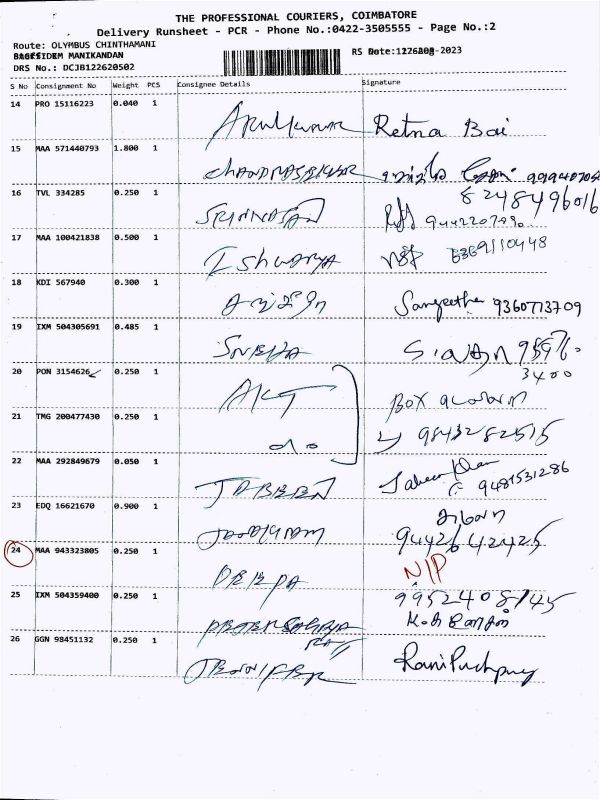 THE PROFESSIONAL COURIERS, COIMBATORE
Delivery Runsheet - PCR - Phone No.:0422-3505555 - Page No.:2
Route: OLYMBUS CHINTHAMANI
MANIKANDAN
DRS No.: DCJB122620502
RS Date: -2023
S No Consignment No Weight PCS Consignee Details Signature
14 PRO 15116223 0.040 1
Arulkumar Retna Bai
15 MAA 571440793 1.800 1
CHANDRASEKAR
16 TVL 334285 0.250 1
8248496016
SRINIVASAN
17 MAA 100421838 0.500 1
Ishwarya 6369110448
18 KDI 567940 0.300 1
Sangeetha 9360773709
19 IXM 504305691 0.485 1
SNEHA
20 PON 3154626 0.250 1
3400
AKT BOX
21 TMG 200477430 0.250 1
9843282515
22 MAA 292849679 0.050 1
JABEEN 9487531286
23 EDQ 16621670 0.900 1
9442642425
24 MAA 943323805 0.250 1
DEEPA N/P
25 IXM 504359400 0.250 1
9952408145
26 GGN 98451132 0.250 1
JENNIFER Rani Pushpam